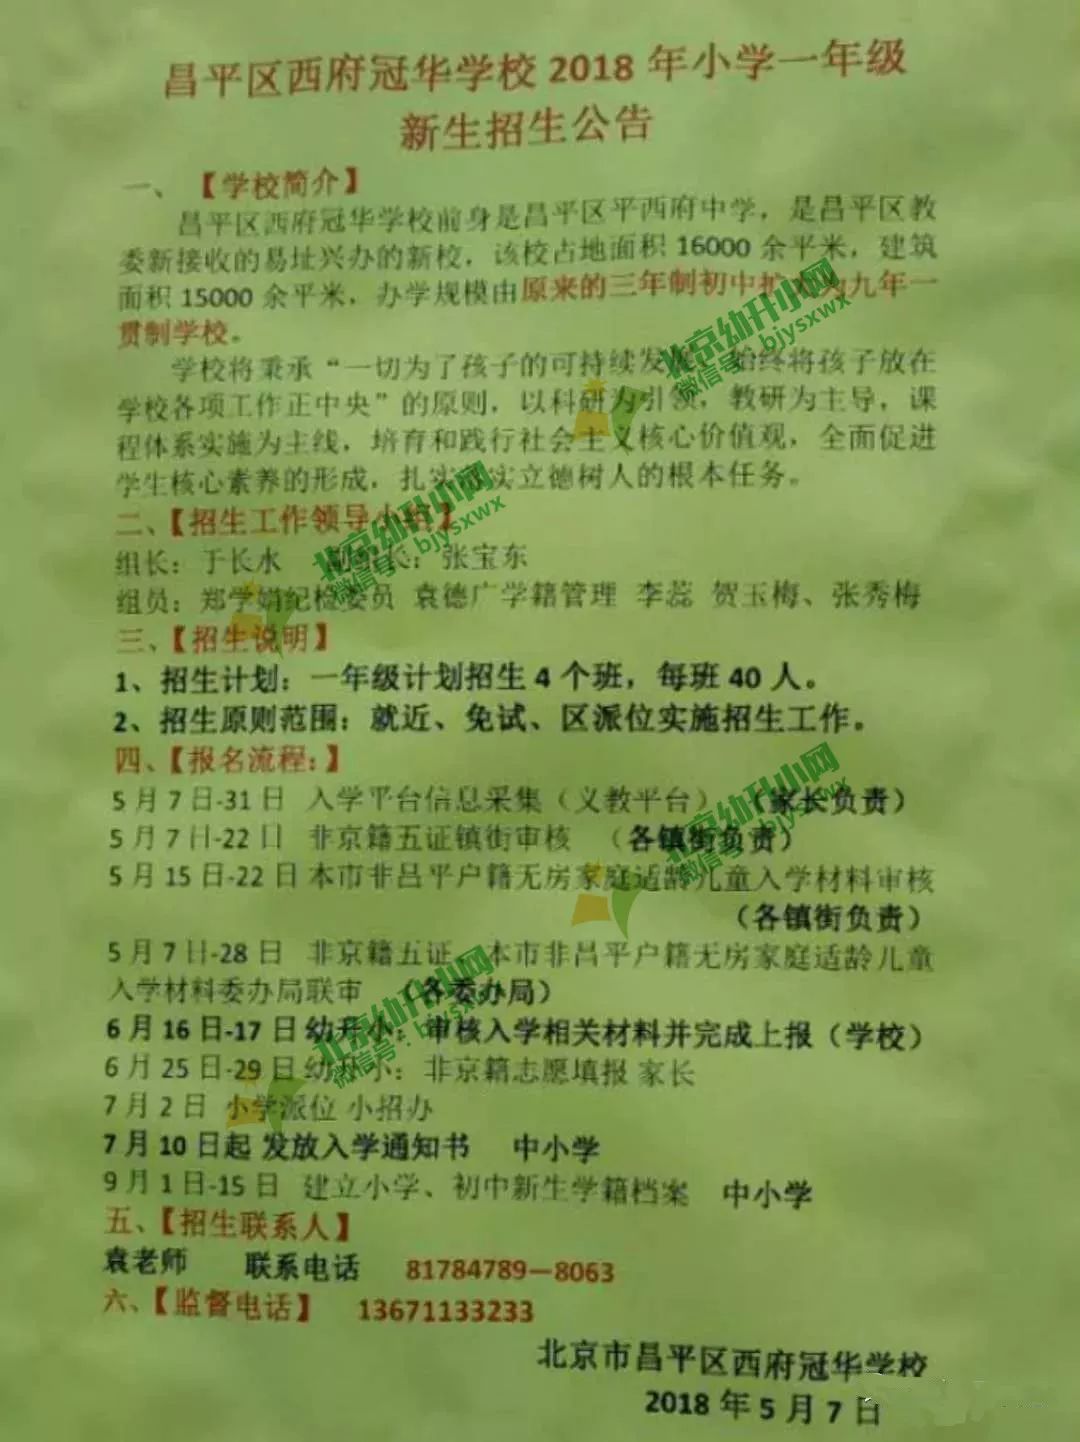 昌平区西府冠华学校 2018 年小学一年级
新生招生公告
一、 【学校简介】
昌平区西府冠华学校前身是昌平区平西府中学，是昌平区教
委新接收的易址兴办的新校，该校占地面积 16000 余平米，建筑
面积 15000 余平米，办学规模由原来的三年制初中扩 为九年一
贯制学校。
学校将秉承“一切为了孩子的可持续发展，始终将孩子放在
学校各项工作正中央”的原则，以科研为引领，教研为主导，课
程体系实施为主线，培育和践行社会主义核心价值观，全面促进
学生核心素养的形成，扎实落实立德树人的根本任务。
二、【招生工作领导小组】
组长：于长水 副组长：张宝东
组员：郑学娟纪检委员 袁德广学籍管理 李蕊 贺玉梅、张秀梅
三、【招生说明】
1、招生计划：一年级计划招生 4 个班，每班 40 人。
2、招生原则范围：就近、免试、区派位实施招生工作。
四、【报名流程：】
5 月 7 日-31 日 入学平台信息采集（义教平台） （家长负责）
5 月 7 日-22 日 非京籍五证镇街审核 （各镇街负责）
5 月 15 日-22 日 本市非昌平户籍无房家庭适龄儿童入学材料审核
（各镇街负责）
5 月 7 日-28 日 非京籍五证、本市非昌平户籍无房家庭适龄儿童
入学材料委办局联审 （各委办局）
6 月 16 日-17 日 幼升小：审核入学相关材料并完成上报（学校）
6 月 25 日-29 日 幼升小：非京籍志愿填报 家长
7 月 2 日 小学派位 小招办
7 月 10 日起 发放入学通知书 中小学
9 月 1 日-15 日 建立小学、初中新生学籍档案 中小学
五、【招生联系人】
袁老师 联系电话 81784789—8063
六、【监督电话】 13671133233
北京市昌平区西府冠华学校
2018 年 5 月 7 日
北京幼升小网
微信号：bjysxwx
北京幼升小网
微信号：bjysxwx
北京幼升小网
微信号：bjysxwx
北京幼升小网
微信号：bjysxwx